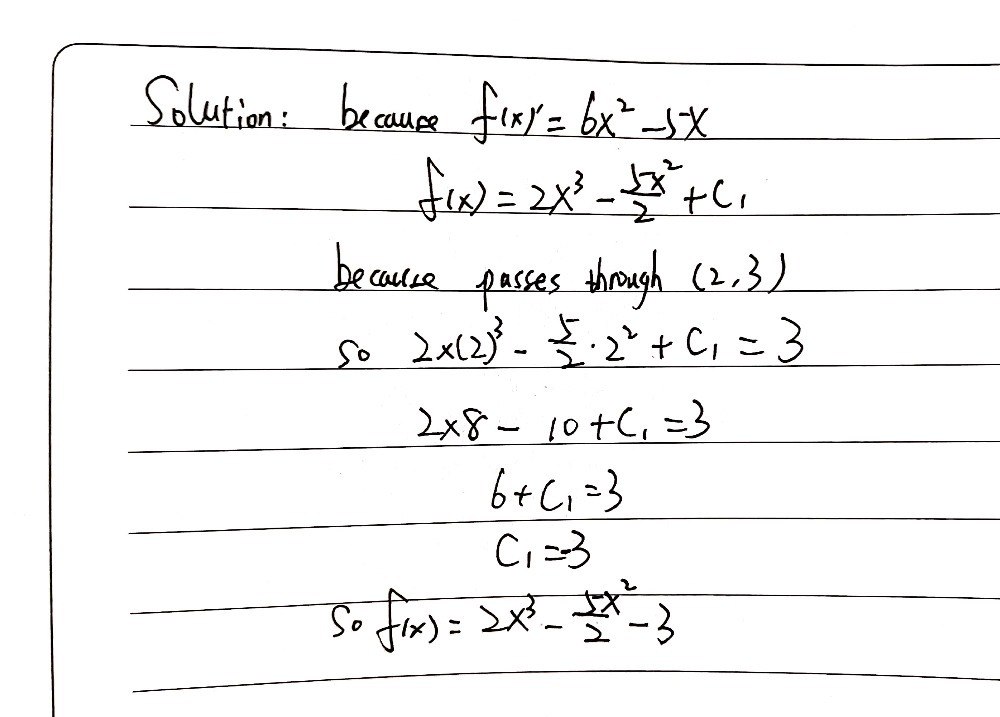 Solution: because f(x)' = 6x² - 5x
f(x) = 2x³ - 5x²/2 + C₁
because passes through (2,3)
so 2×(2)³ - 5/2 · 2² + C₁ = 3
2×8 - 10 + C₁ = 3
6 + C₁ = 3
C₁ = -3
So f(x) = 2x³ - 5x²/2 - 3